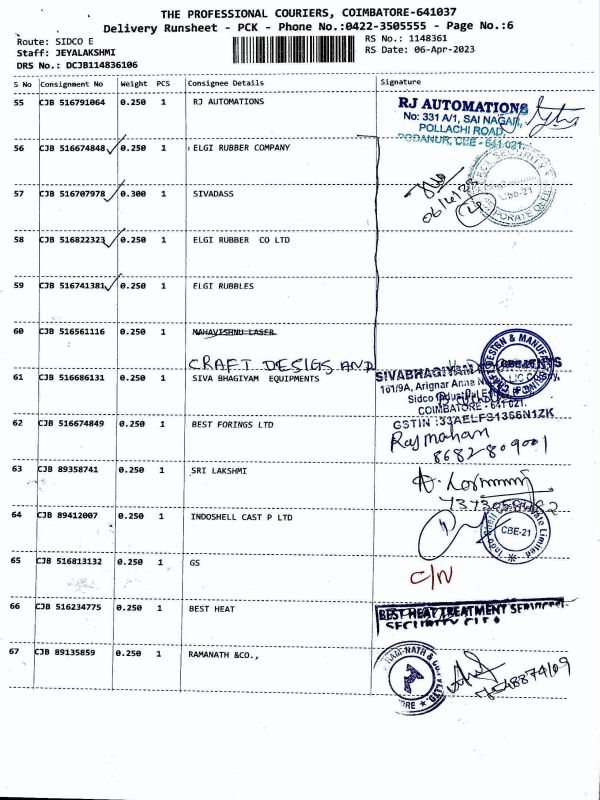 THE PROFESSIONAL COURIERS, COIMBATORE-641037
Delivery Runsheet - PCK - Phone No.:0422-3505555 - Page No.:6
Route: SIDCO E
RS No.: 1148361
Staff: JEYALAKSHMI
RS Date: 06-Apr-2023
DRS No.: DCJB114836106
S No Consignment No Weight PCS Consignee Details Signature
55 CJB 516791064 0.250 1 RJ AUTOMATIONS
RJ AUTOMATIONS
No: 331 A/1, SAI NAGAR,
POLLACHI ROAD,
PODANUR, CBE - 641 021.
56 CJB 516674848 0.250 1 ELGI RUBBER COMPANY
57 CJB 516707978 0.300 1 SIVADASS
06/4/23
CBE-21
CORPORATE OFFICE
58 CJB 516822323 0.250 1 ELGI RUBBER CO LTD
59 CJB 516741381 0.250 1 ELGI RUBBLES
60 CJB 516561116 0.250 1 MAHAVISHNU LASER
CRAFT DESIGS AND
61 CJB 516686131 0.250 1 SIVA BHAGIYAM EQUIPMENTS
161/9A, Arignar Anna
COIMBATORE - 641 021.
GSTIN :33AELFS1366N1ZK
62 CJB 516674849 0.250 1 BEST FORINGS LTD
Rajmohan
8682809001
63 CJB 89358741 0.250 1 SRI LAKSHMI
64 CJB 89412007 0.250 1 INDOSHELL CAST P LTD
CBE-21
65 CJB 516813132 0.250 1 GS
C/N
66 CJB 516234775 0.250 1 BEST HEAT
BEST HEAT TREATMENT SERVICES
67 CJB 89135859 0.250 1 RAMANATH &CO.,